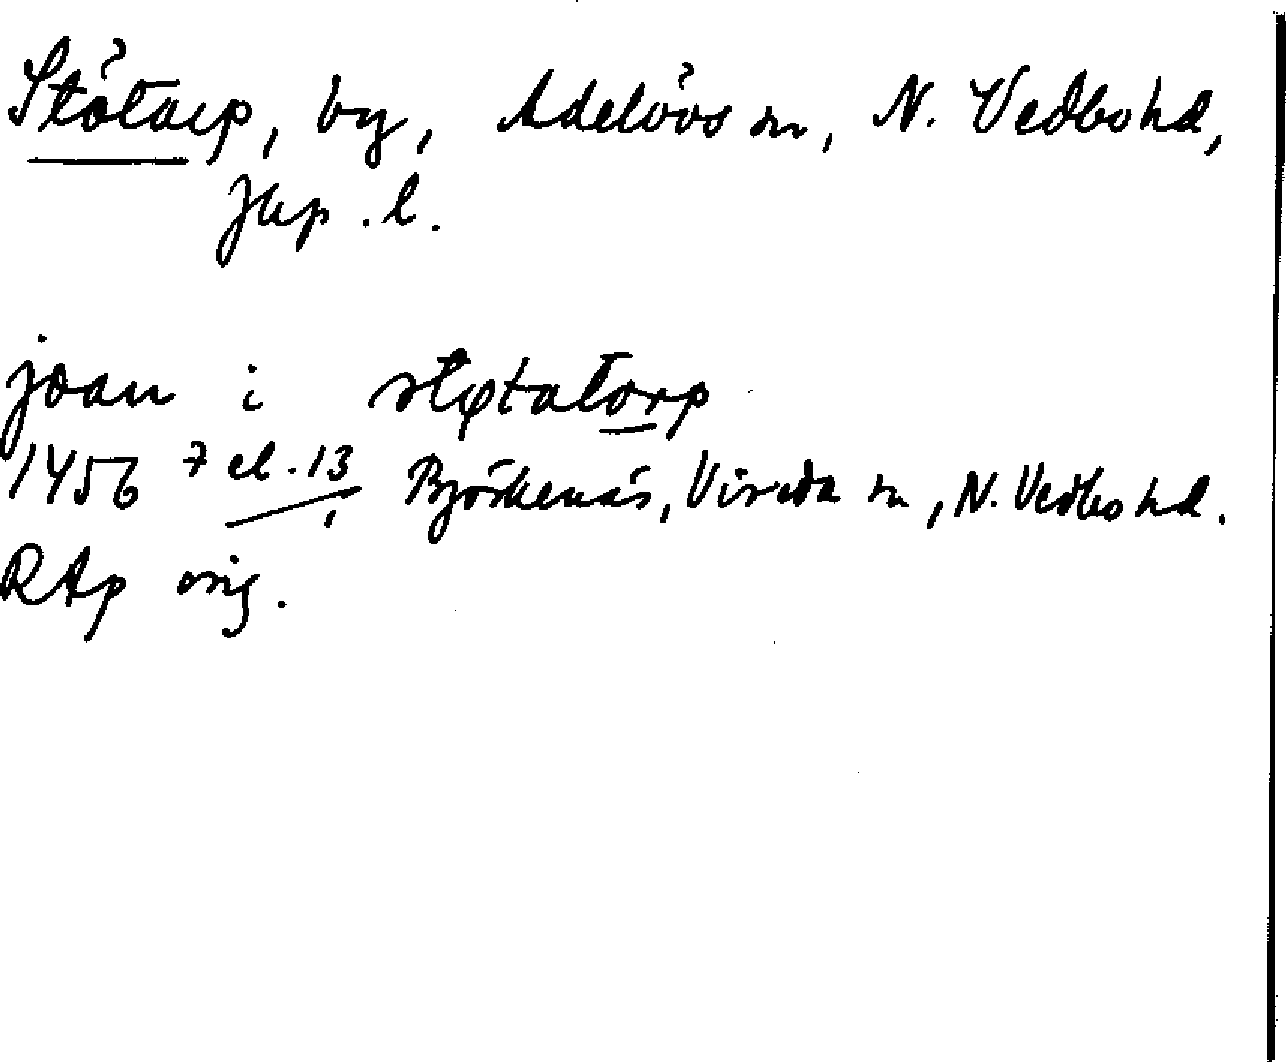 Stötarp, by, Adelövs sn, N. Vedbo hd,
Jkp. l.
joan i støtatorp
1456 7 el. 13/, Björkenäs, Vireda sn, N. Vedbo hd.
RAp orig.